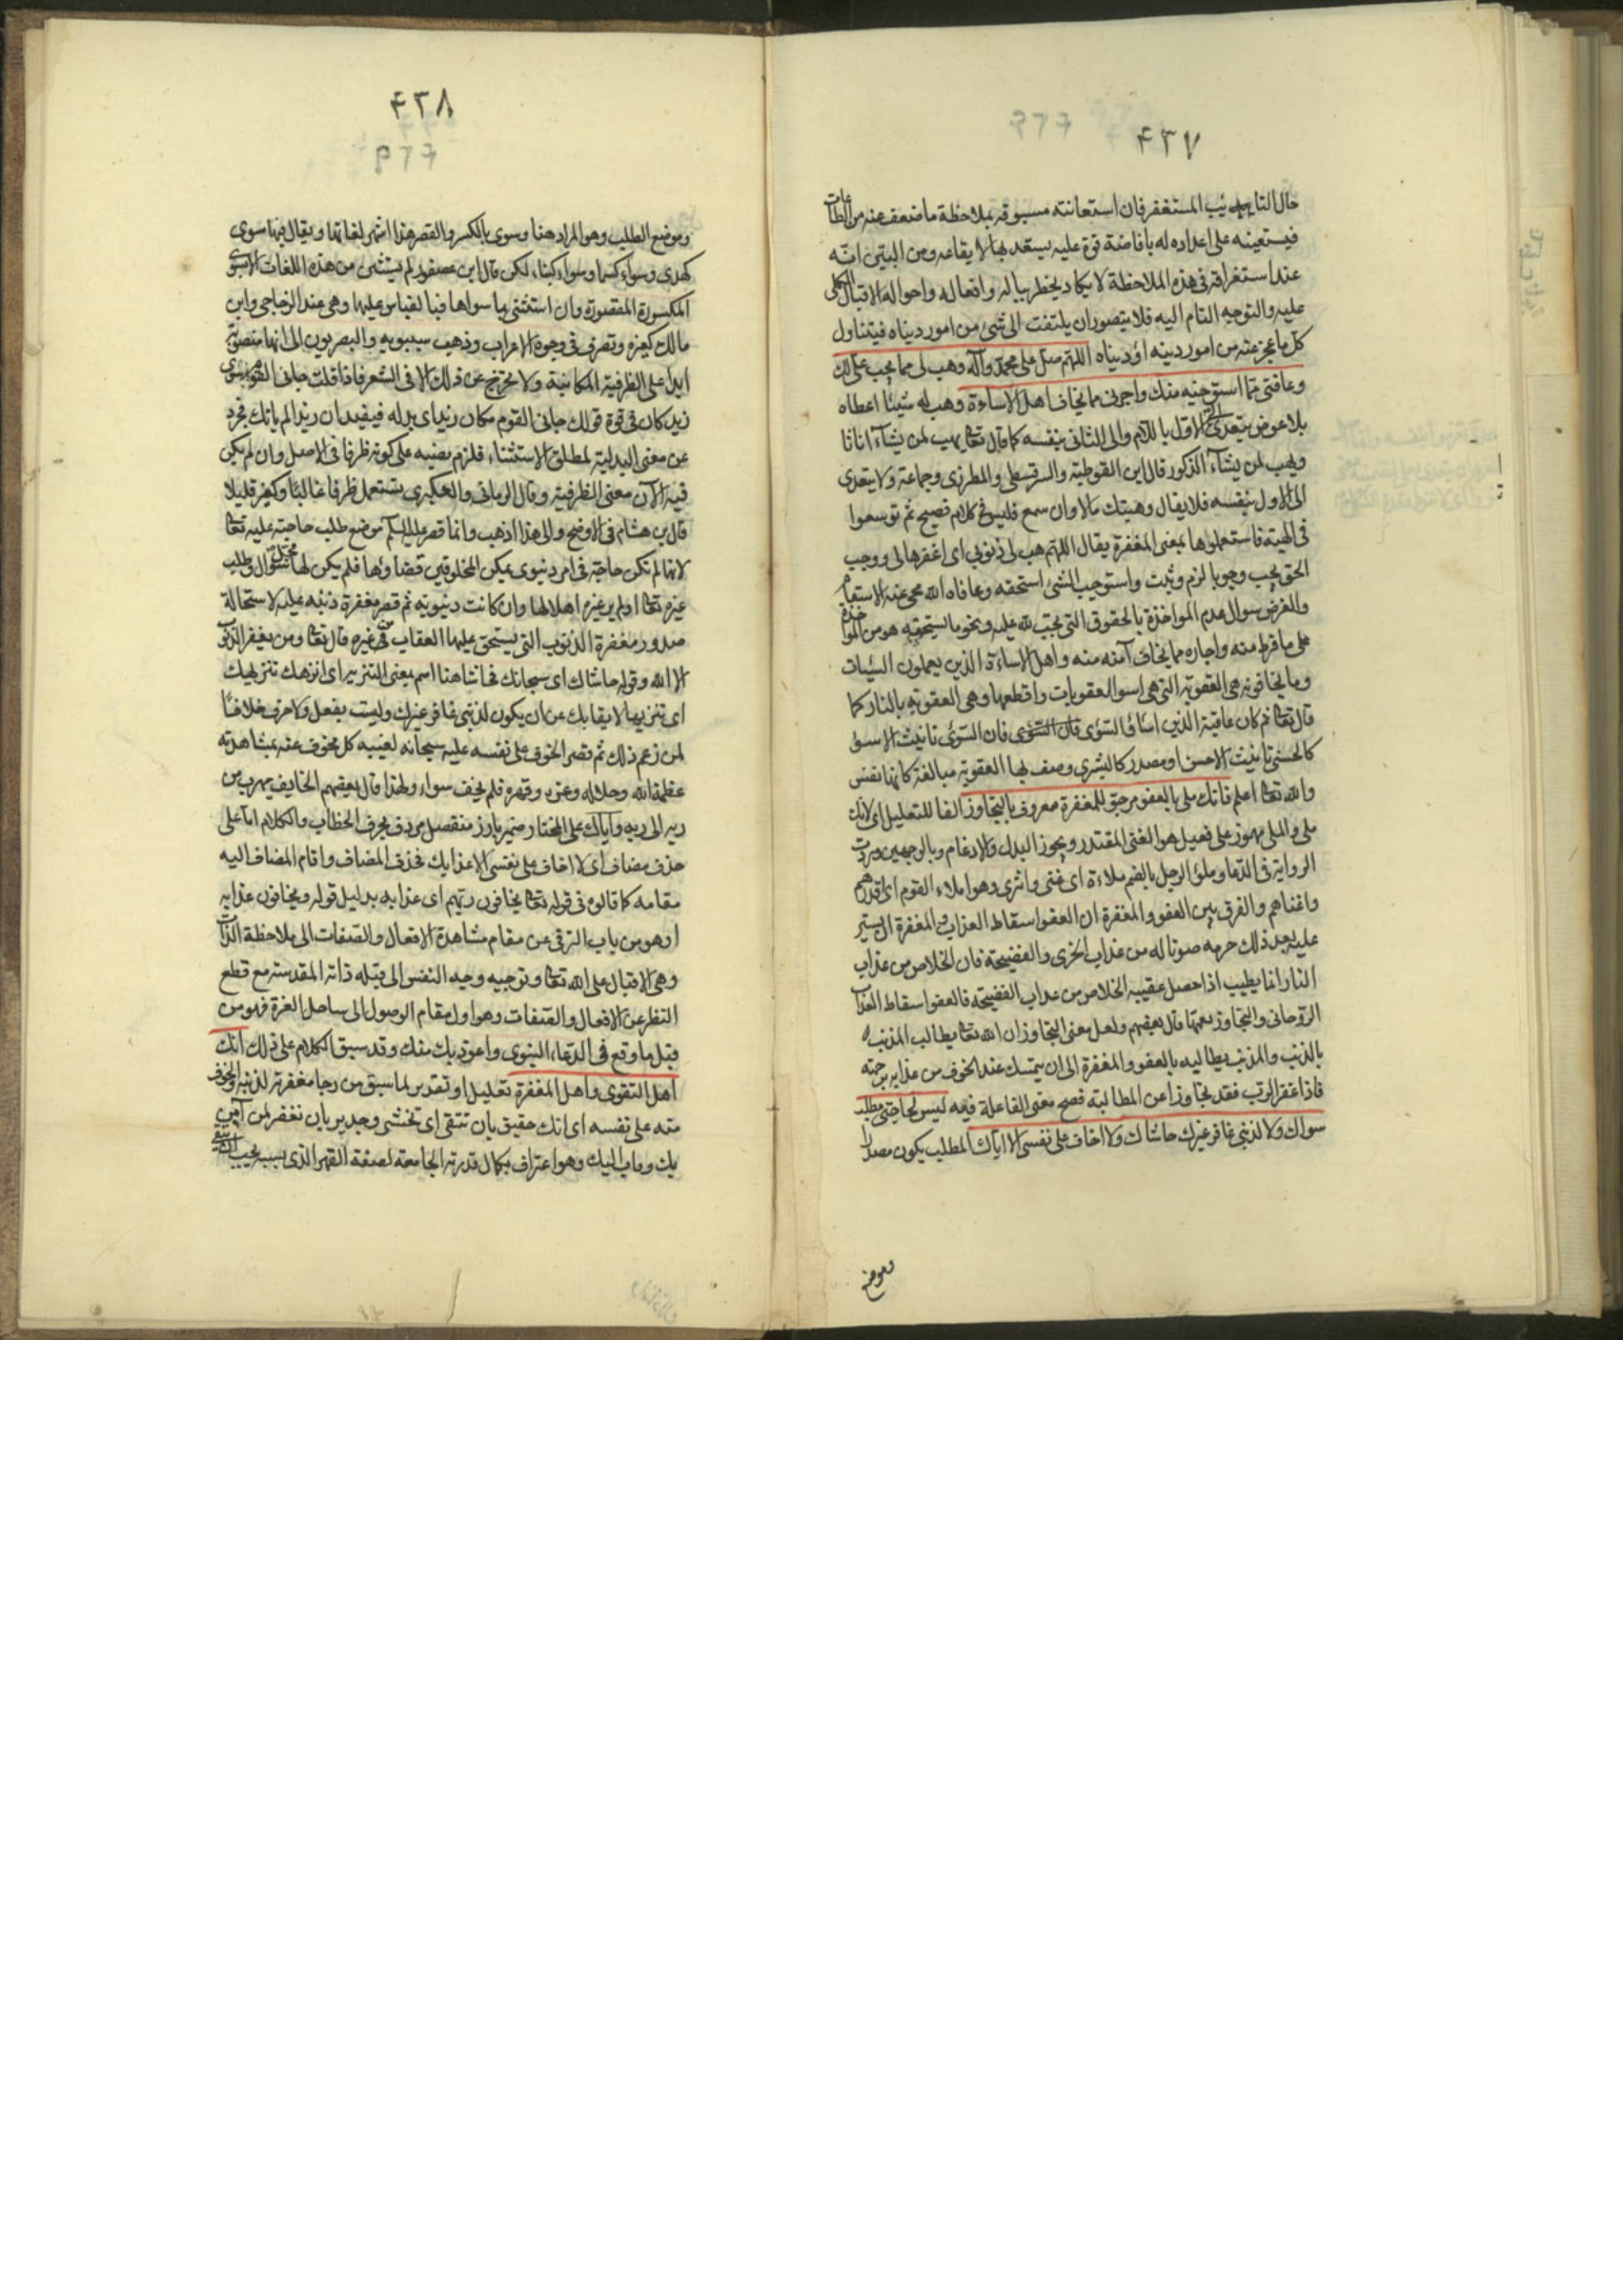 ۴۳۷
حال التايب المستغفر فان استعانته مسبوقه بملاحظة ما ضعف عنه من الطاعات
فيستعينه على اعداده له بافاضة قوة عليه يستعد بها لايقاعه ومن البين انه
عند استغراقه فى هذه الملاحظة لا يكاد يخطر بباله وافعاله واحواله الاقبال الكلى
عليه والتوجه التام اليه فلا يتصور ان يلتفت الى شئ من امور دنياه فيتناول
كل ما عجز عنه من امور دينه او دنياه اللهم صل على محمد وآله وهب لى مما يجب على لك
وعافنى مما استوجبه منك واجرنى مما يخاف اهل الاساءة وهب له شيئا اعطاه
بلا عوض يتعدى الى الاول باللام والى الثانى بنفسه كما قال تعا يهب لمن يشآء اناثا
ويهب لمن يشآء الذكور قال ابن القوطية والسرقسطى والمطرزى وجماعة ولا يتعدى
الى الاول بنفسه فلا يقال وهبتك مالا وان سمع فليس فى كلام فصيح ثم توسعوا
فى الهبة فاستعملوها بمعنى المغفرة يقال اللهم هب لى ذنوبى اى اغفرها لى ووجب
الحق يجب وجوبا لزم وثبت واستوجب الشئ استحقه وعافاه الله محى عنه الاسقام
والغرض سوال عدم المواخذة بالحقوق التى يجب لله عليه ونحو ما يستحقه هو من المواخذة
على ما فرط منه واجاره مما يخاف آمنه منه واهل الاساءة الذين يعملون السيئات
وما يخافونه هى العقوبة التى هى اسوا العقوبات واقطعها وهى العقوبة بالنار كما
قال تعا ثم كان عاقبة الذين اساؤا السؤى فان السؤى تانيث الاسوؤ
كالحسنى تانيث الاحسن او مصدر كالبشرى وصف بها العقوبة مبالغة كانها نفس
والله تعا اعلم فانك ملى بالعفو مرجو للمغفرة معروف بالتجاوز الفا للتعليل اى لانك
ملى والملى مهموز على فعيل هو الغنى المقتدر ويجوز البدل والادغام وبالوجهين وردت
الرواية فى الدعا وملؤ الرجل بالضم ملاءة اى غنى واثرى وهو املاء القوم اى اقدرهم
واغناهم والفرق بين العفو والمغفرة ان العفو اسقاط العذاب والمغفرة ان يستر
عليه بعد ذلك جرمه صونا له من عذاب الخزى والفضيحة فان الخلاص من عذاب
النار انما يطيب اذا حصل عقيبه الخلاص من عذاب الفضيحة فالعفو اسقاط العذاب
الروحانى والتجاوز يعمها قال بعضهم ولعل معنى التجاوز ان الله تعا يطالب المذنب
بالذنب والمذنب يطالبه بالعفو والمغفرة الى ان يتمسك عند الخوف من عذابه برحمته
فاذا غفر الرب فقد تجاوزا عن المطالبة فصح معنى المفاعلة فيه ليس لحاجتى مطلب
سواك ولا لذنبى غافر غيرك حاشاك ولا اخاف على نفسى الا اياك المطلب يكون مصدرا
وموضع
۴۳۸
وموضع الطلب وهو المراد هنا وسوى بالكسر والقصر هذا اشهر لغاتها ويقال فيها سوى
كهدى وسواء كسما وسواء كبناء لكن قال ابن عصفور لم يستثنى من هذه اللغات الا سوى
المكسورة المقصورة فان استثنى بما سواها فبالقياس عليها وهى عند الزجاجى وابن
مالك كغيره وتصرف فى وجوه الاعراب وذهب سيبويه والبصريون الى انها منصوبة
ابدا على الظرفية المكانية ولا تخرج عن ذلك الا فى الشعر فاذا قلت جانى القوم سوى
زيد كان فى قوة قولك جانى القوم مكان زيد اى بدله فيفيد ان زيدا لم ياتك فجرد
عن معنى البدلية لمطلق الاستثناء فلزم نصبه على كونه ظرفا فى الاصل وان لم يكن
فيه الآن معنى الظرفية وقال الرمانى والعكبرى يستعمل ظرفا غالبًا وكغير قليلا
قال بن هشام فى الاوضح والى هذا اذهب وانما قصر عليه السلم موضع طلب حاجته عليه تعا
لانها لم تكن حاجة فى امر دنيوى يمكن المخلوقين قضاؤها فلم يكن لها محل سوال وطلب
غيره تعا او لم ير غيره اهلا لها وان كانت دنيوية ثم قصر مغفرة ذنبه عليه لاستحالة
صدور مغفرة الذنوب التى يستحق عليها العقاب من غيره قال تعا ومن يغفر الذنوب
الا الله وقوله حاشاك اى سبحانك فحاشا هنا اسم بمعنى التنزيه اى انزهك تنزيهك
اى تنزيها لايقا بك عن ان يكون لذنبى غافر غيرك وليست بفعل ولا حرف خلافًا
لمن زعم ذلك ثم قصر الخوف على نفسه عليه سبحانه لغيبة كل مخوف عنه بمشاهدته
عظمة الله وجلاله وعزه وقهره فلم يخف سواه ولهذا قال بعضهم الخايف يهرب من
ربه الى ربه واياك على المختار ضمير بارز منفصل مردف بحرف الخطاب والكلام اما على
حذف مضاف اى لا اخاف على نفسى الا عذابك فحذف المضاف واقام المضاف اليه
مقامه كما قالوه فى قوله تعا يخافون ربهم اى عذابه بدليل قوله ويخافون عذابه
او هو من باب الترقى عن مقام مشاهدة الافعال والصفات الى ملاحظة الذات
وهى الاقبال على الله تعا وتوجيه وجه النفس الى قبلة ذاته المقدسة مع قطع
النظر عن الافعال والصفات وهو اول مقام الوصول الى ساحل العزة فهو من
قبل ما وقع فى الدعاء النبوى واعوذ بك منك وقد سبق الكلام على ذلك انك
اهل التقوى واهل المغفرة تعليل او تقدير لما سبق من رجا مغفرته لذنبه والخوف
منه على نفسه اى انك حقيق بان تتقى اى تخشى وجدير بان تغفر لمن آمن
بك وماب اليك وهو اعتراف بكمال قدرته الجامعة لصفة القهر الذى بسببه يجب